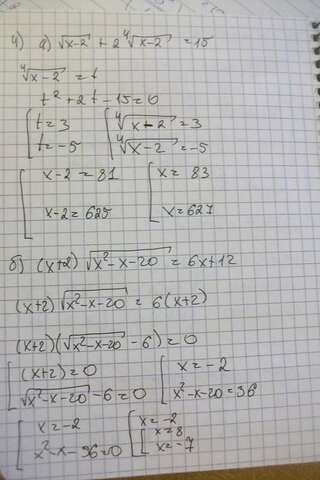 4) а) √(x-2) + 2 ⁴√(x-2) = 15
⁴√(x-2) = t
t² + 2t - 15 = 0
[ t = 3 [ ⁴√(x-2) = 3
t = -5 ⁴√(x-2) = -5
[ x-2 = 81 [ x = 83
x-2 = 625 x = 627
б) (x+2) √(x²-x-20) = 6x+12
(x+2) √(x²-x-20) = 6(x+2)
(x+2)(√(x²-x-20) - 6) = 0
[ (x+2) = 0 [ x = -2
√(x²-x-20) - 6 = 0 x²-x-20 = 36
[ x = -2 [ x = -2
x²-x-56=0 [ x = 8
x = -7